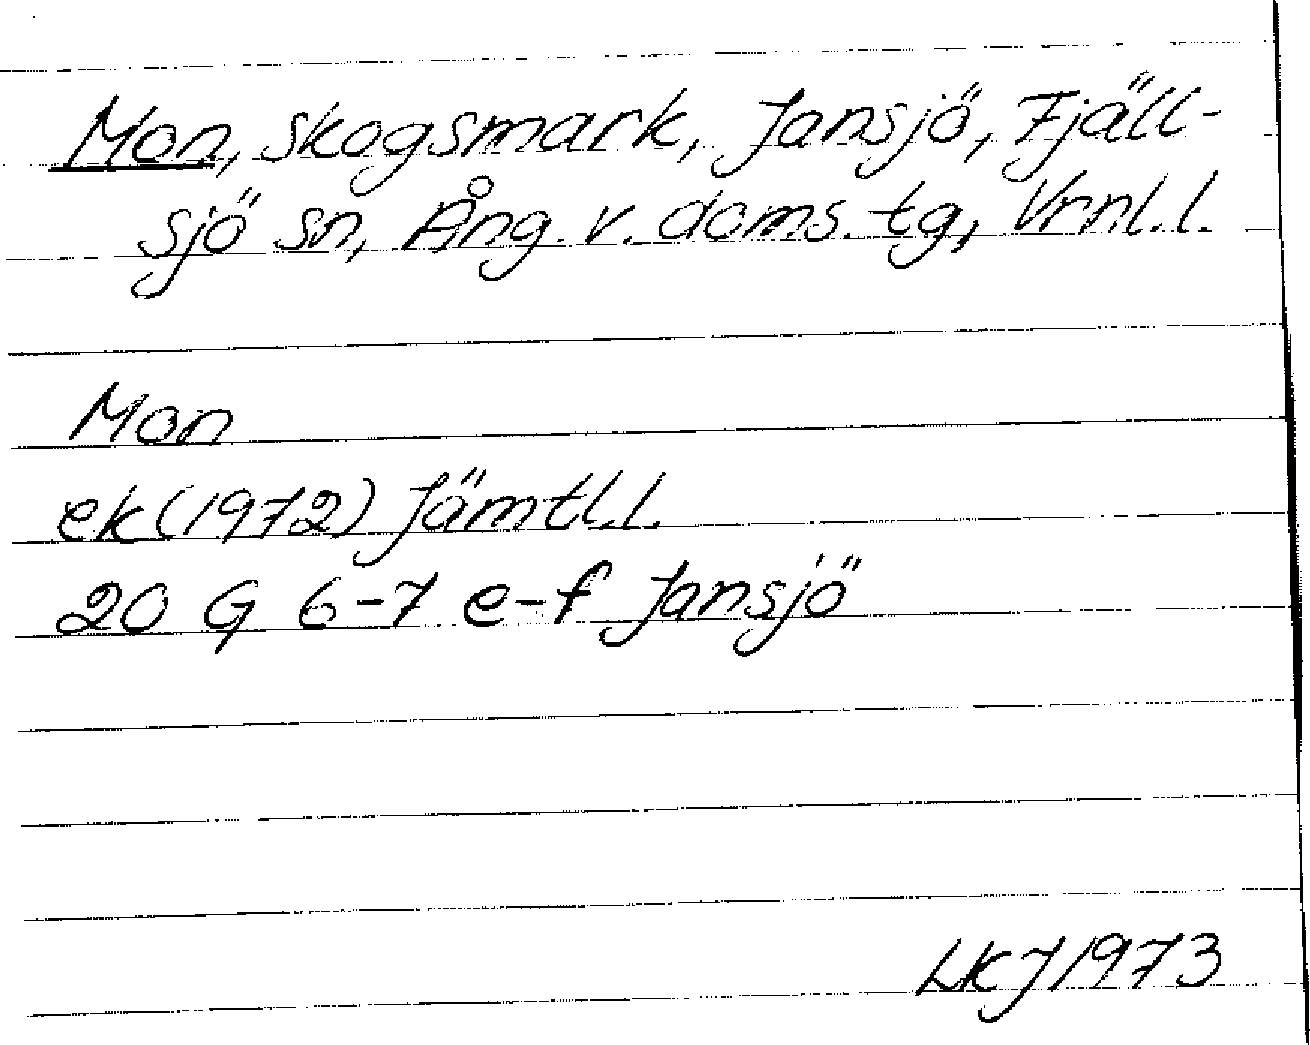 Mon, skogsmark, Jansjö, Fjäll-
sjö sn, Ång. v. doms. tg, Vrnl. l.
Mon
ek (1972) Jämtl. l.
20 G 6-7 e-f Jansjö
LKJ 1973